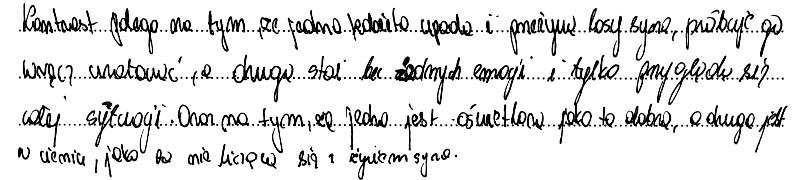 Kontrast polega na tym, że jedna kobieta upada i przeżywa losy syna, próbując go
wręcz uratować, a druga stoi bez żadnych emocji i tylko przygląda się
całej sytuacji. Oraz na tym, że jedna jest oświetlona jako ta dobra, a druga jest
w cieniu, jako ta nie licząca się z życiem syna.